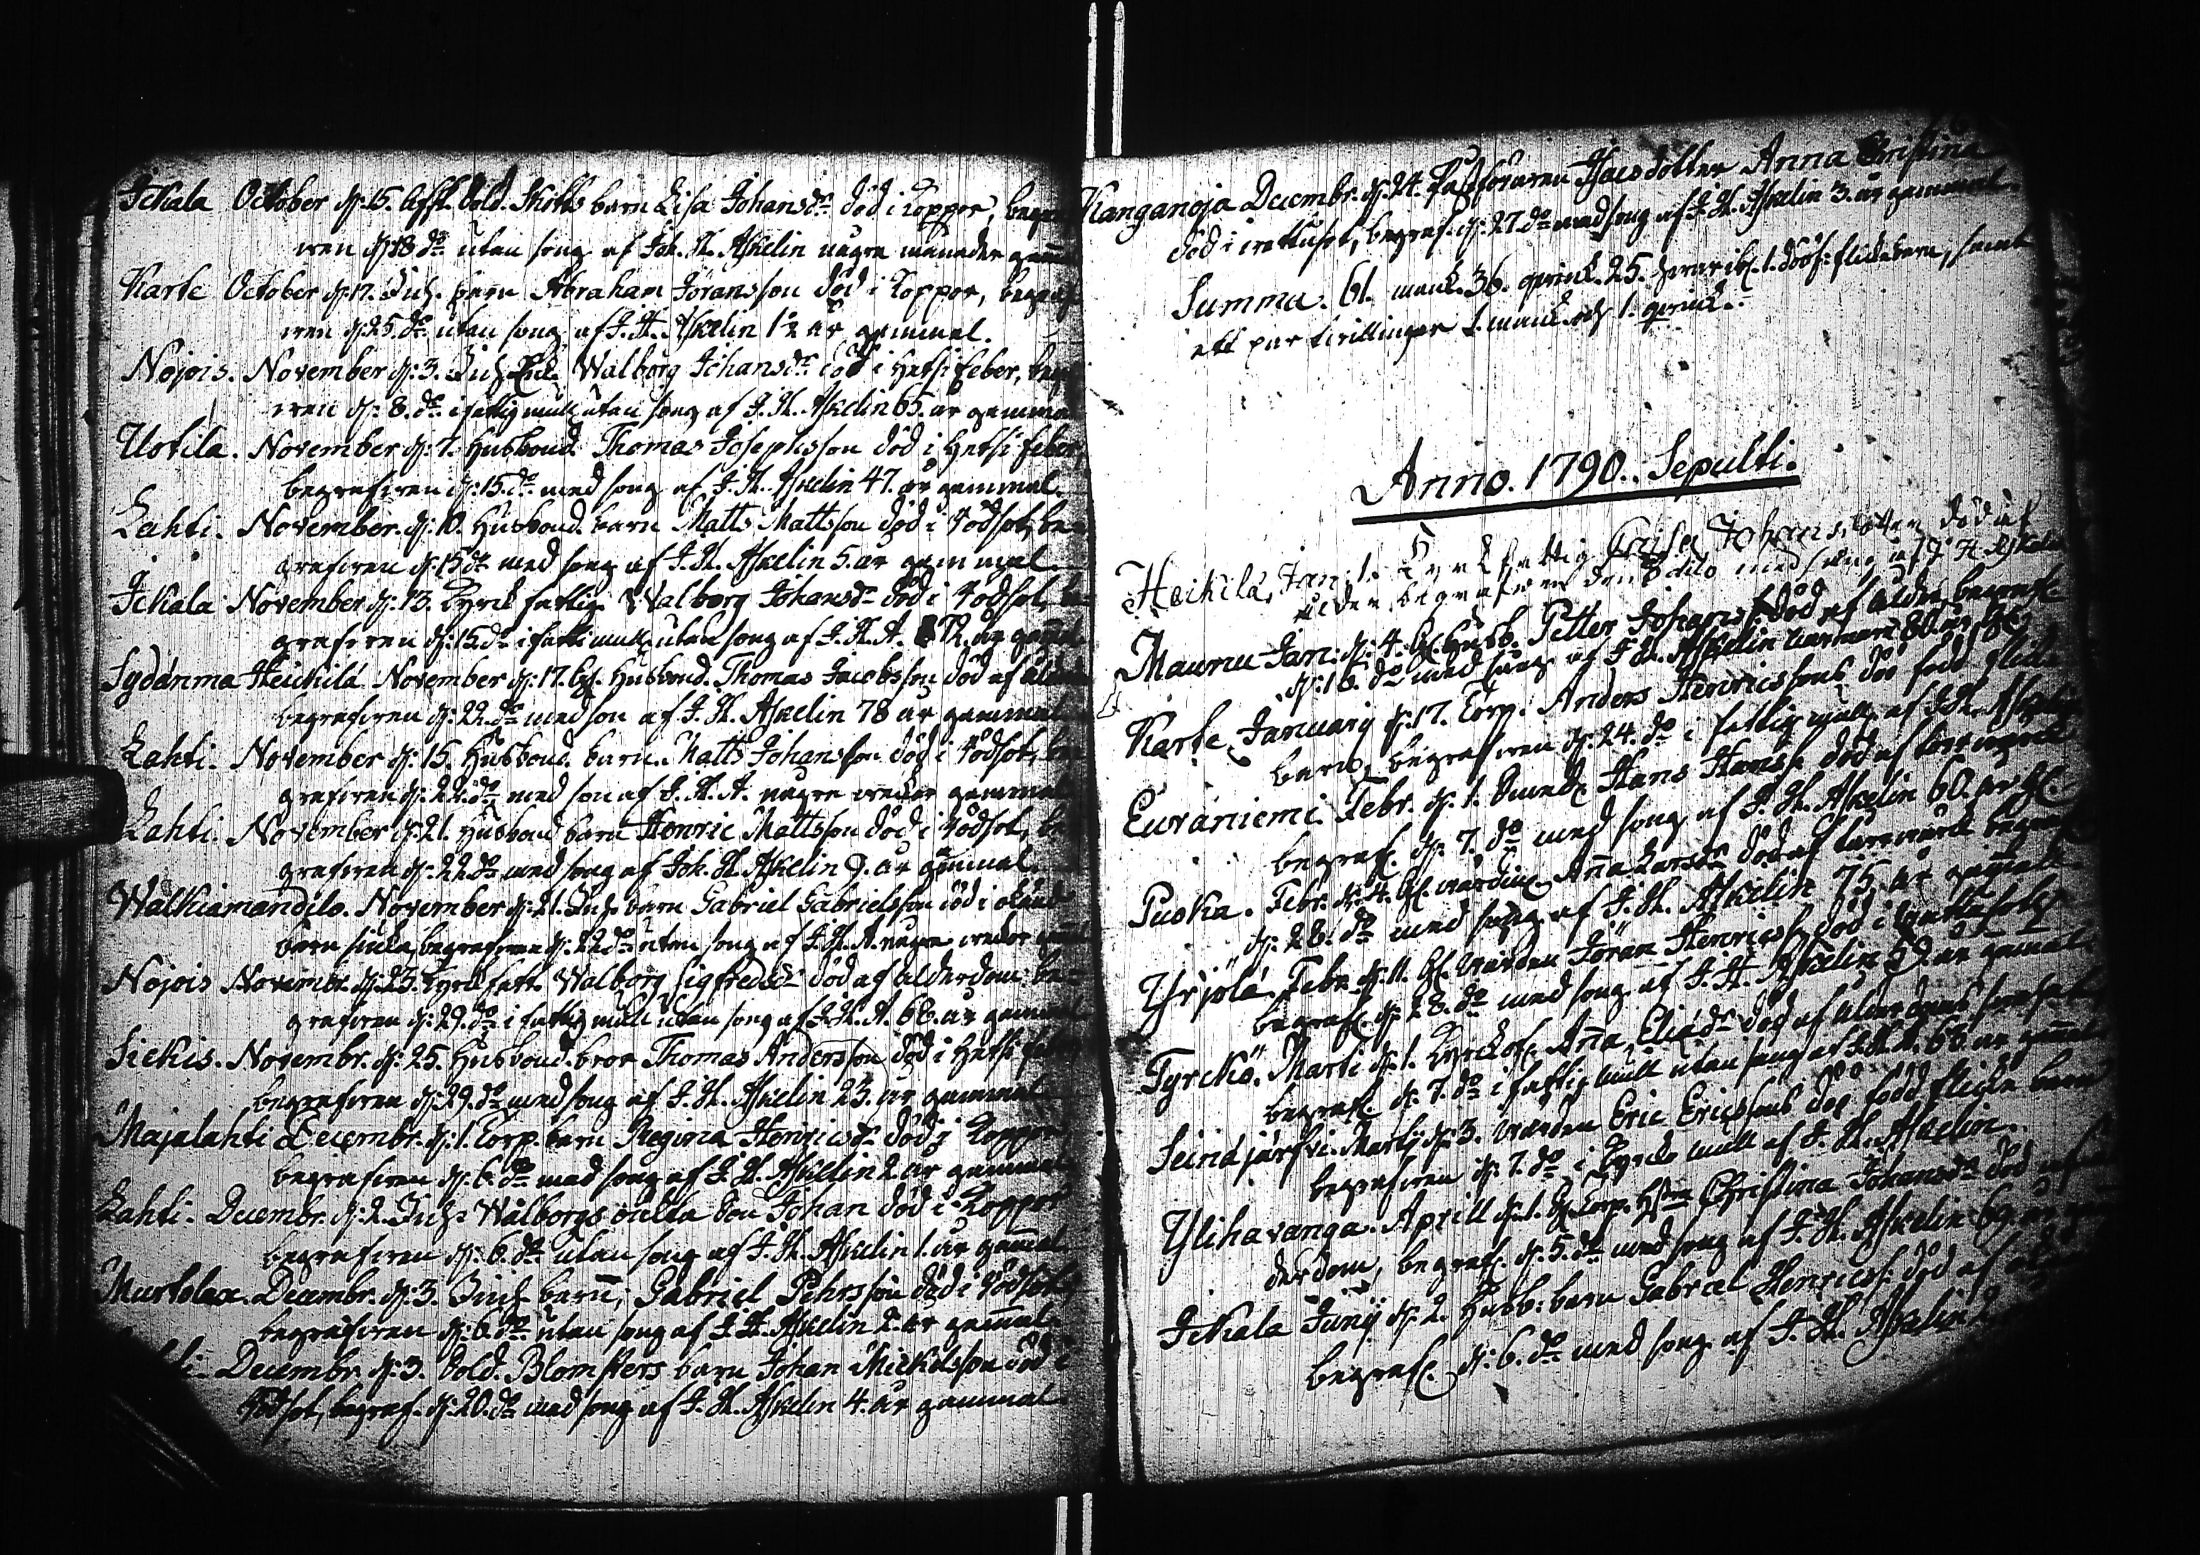 Ickala October d: 15. Afsk. Sold. barn Lisa Johansdr död i koppor, begraf
wen d: 18 do utan song af Joh. H. Askelin någre månader gam̄al
Karfe October d: 17. Inh. barn Abraham Joransson död i koppor, begraf
wen d: 25 do utan song af J. H. Askelin 1½ år gammal.
Nojois. November d: 3. Inh. Walborg Johansdr död i Hetsi feber, begraf
wen d: 8. do i fattig mull utan song af J. H. Askelin 65. år gammal
Uotila. November d: 7. Husbond. Thomas Josephsson död i Hetsi feber,
begrafwen d: 15. do med song af J. H. Askelin 47. år gammal.
Lahti. November. d: 10. Husbond. barn Matts Mattsson död i Rödsot, be-
grafwen d: 15 do med song af J. H. Askelin 5. år gammal.
Ickala November d: 13. Kyrck fattig. Walborg Johansdr död i Rödsot, be-
grafwen d: 15. do i fatti mull utan song af J. H. A. 72. år gam̄al
Sydänma Heickilä November d: 17. Gl. Husbond. Thomas Jacobsson död af ålder
begrafwen d: 22. do med son af J. H. Askelin 78 år gammal
Lahti. November d: 15. Husbond. barn. Matts Johansson död i Rödsot, be-
grafwen d: 22. do med son af J. H. A. någre weckor gammal
Lahti. November d: 21. Husbond barn Henric Mattsson död i Rödsot, be-
grafwen d: 22. do med song af Joh. H. Askelin 9. år gammal.
Walkiamandilo. November d: 21. Inh. barn Gabriel Gabrielsson död i okänd
barn siuka, begrafwen d: 22 do utan song af J. H. A. någre weckor gam̄al
Nojois Novembr. d: 23. Kyrck fatt. Walborg Sigfredsdr död af ålderdom be-
grafwen d: 29. do i fattig mull utan song af J. H. A. 66. år gammal
Sickis. Novembr. d: 25. Husbond. bror Thomas Andersson död i Hetsi feber
begrafwen d: 29. do med song af J. H. Askelin 23. år gammal
Majalahti Decembr. d: 1. Torp. barn Regina Henricsdr död i koppor,
begrafwen d: 6. do med song af J. H. Askelin 2. år gammal
Lahti. Decembr. d: 2. Inh. Walborgs oächta Son Johan död i koppor
begrafwen d: 6. do utan song af J. H. Askelin 1. år gam̄al
Murtolax. Decembr. d: 3. Inh. barn, Gabriel Pehrsson död i Rödsot,
begrafwen d: 6. do utan song af J. H. Askelin 2. år gam̄al
Decembr. d: 3. Sold. Blomsters barn Johan Mickelsson död i
Rödsot, begraf. d: 20. do med song af J. H. Askelin 4. år gammal
Kanganoja Decembr. d: 24. Dotter Anna Christina
död i begraf. d: 27. do med song af J. H. Askelin 3. år gammal.
Summa. 61. mank. 36. qwink. 25. 1. dödf: flickebarn, samt
ett par twillingar 1. mank. och 1. qwink.
Anno. 1790. Sepulti.
Heikilä, Jan: 1. Kyrckfattig Johansdotter död af
ålder, begrafwen den ditto med sång af J H Askelin
Maunu Jan: d: 4. Gl. Husb. Petter Johanss. död af ålder, begrafw.
d: 16. do med sång af J. H. Askelin närmare 80. år Gl.
Karfe Januarij d: 17. Torp. Anders Henricssons död född flicke
barn, begrafwen d: 24. do i fattig mull af J. H. Askelin
Euraniemi. Febr. d: 1. Hans Hanss. död af
begraf. d: 7. do med song af J. H. Askelin 60. år Gl.
Puska. Febr. d: 4. Gl. wärdin. An̄a Larsdr död af begraf
d: 28. do med song af J. H. Askelin 75. år gam̄al
Yrjölä. Febr. d: 11. Gl. wärden Jöran Henricss. död i
begraf. d: 28. do med song af J. H. Askelin 59 år gam̄al
Tyrckö. Marti d: 1. An̄a Eliædr död af ålderdoms
begraf. d: 7. do i fattig mull utan song af J. H. A. 66. år gam̄al
Seinäjärfvi. Martij d: 3. wärden Eric Ericssons död född flicke barn
begrafwen d: 7. do i Kyrcko mull af J. H. Askelin.
Ylihavanga. Aprill d: 1. Gl. Torp. Hstru Christina Johansdr död af ål
derdom, begraf. d: 5. do med song af J. H. Askelin 69. år
Ickala Junij d: 2. Husb: barn Gabriel Henricss. död af
begraf. d: 6. do med song af J. H. Askelin